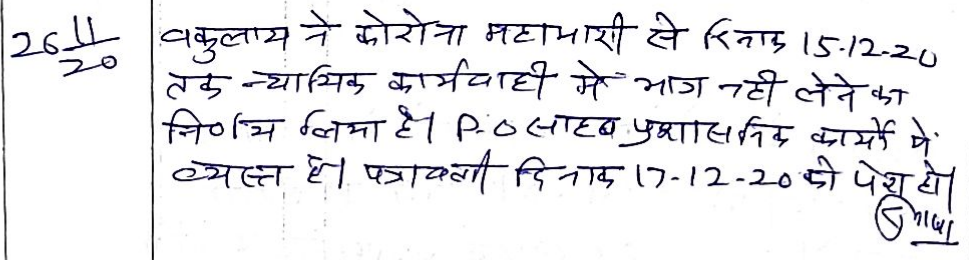 26 11/20 वकुलाय ने कोरोना महामारी से दिनाक 15.12.20
तक न्यायिक कार्यवाही मे भाग नही लेने का
निर्णय लिया है। P.O साहब प्रशासनिक कार्यो मे
व्यस्त है। पत्रावली दिनाक 17-12-20 को पेश हो।